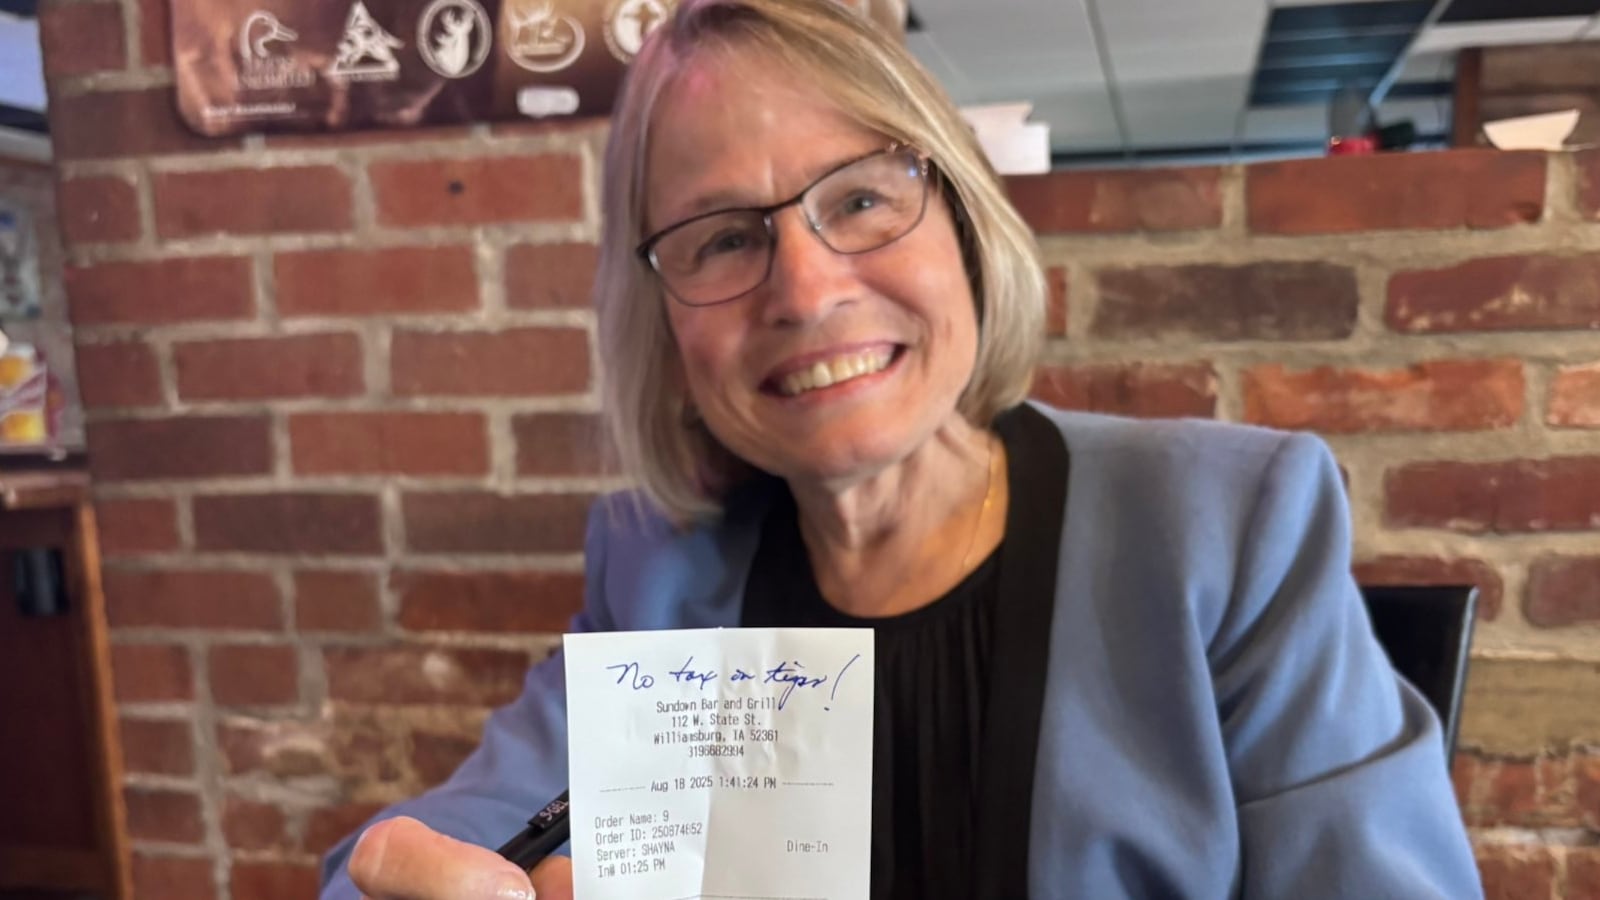 No tax on tips!
Sundown Bar and Grill
112 W. State St.
Williamsburg, IA 52361
3196682994
Aug 18 2025 1:41:24 PM
Order Name: 9
Order ID: 250874652
Server: SHAYNA
Dine-In
In# 01:25 PM
S-GEL